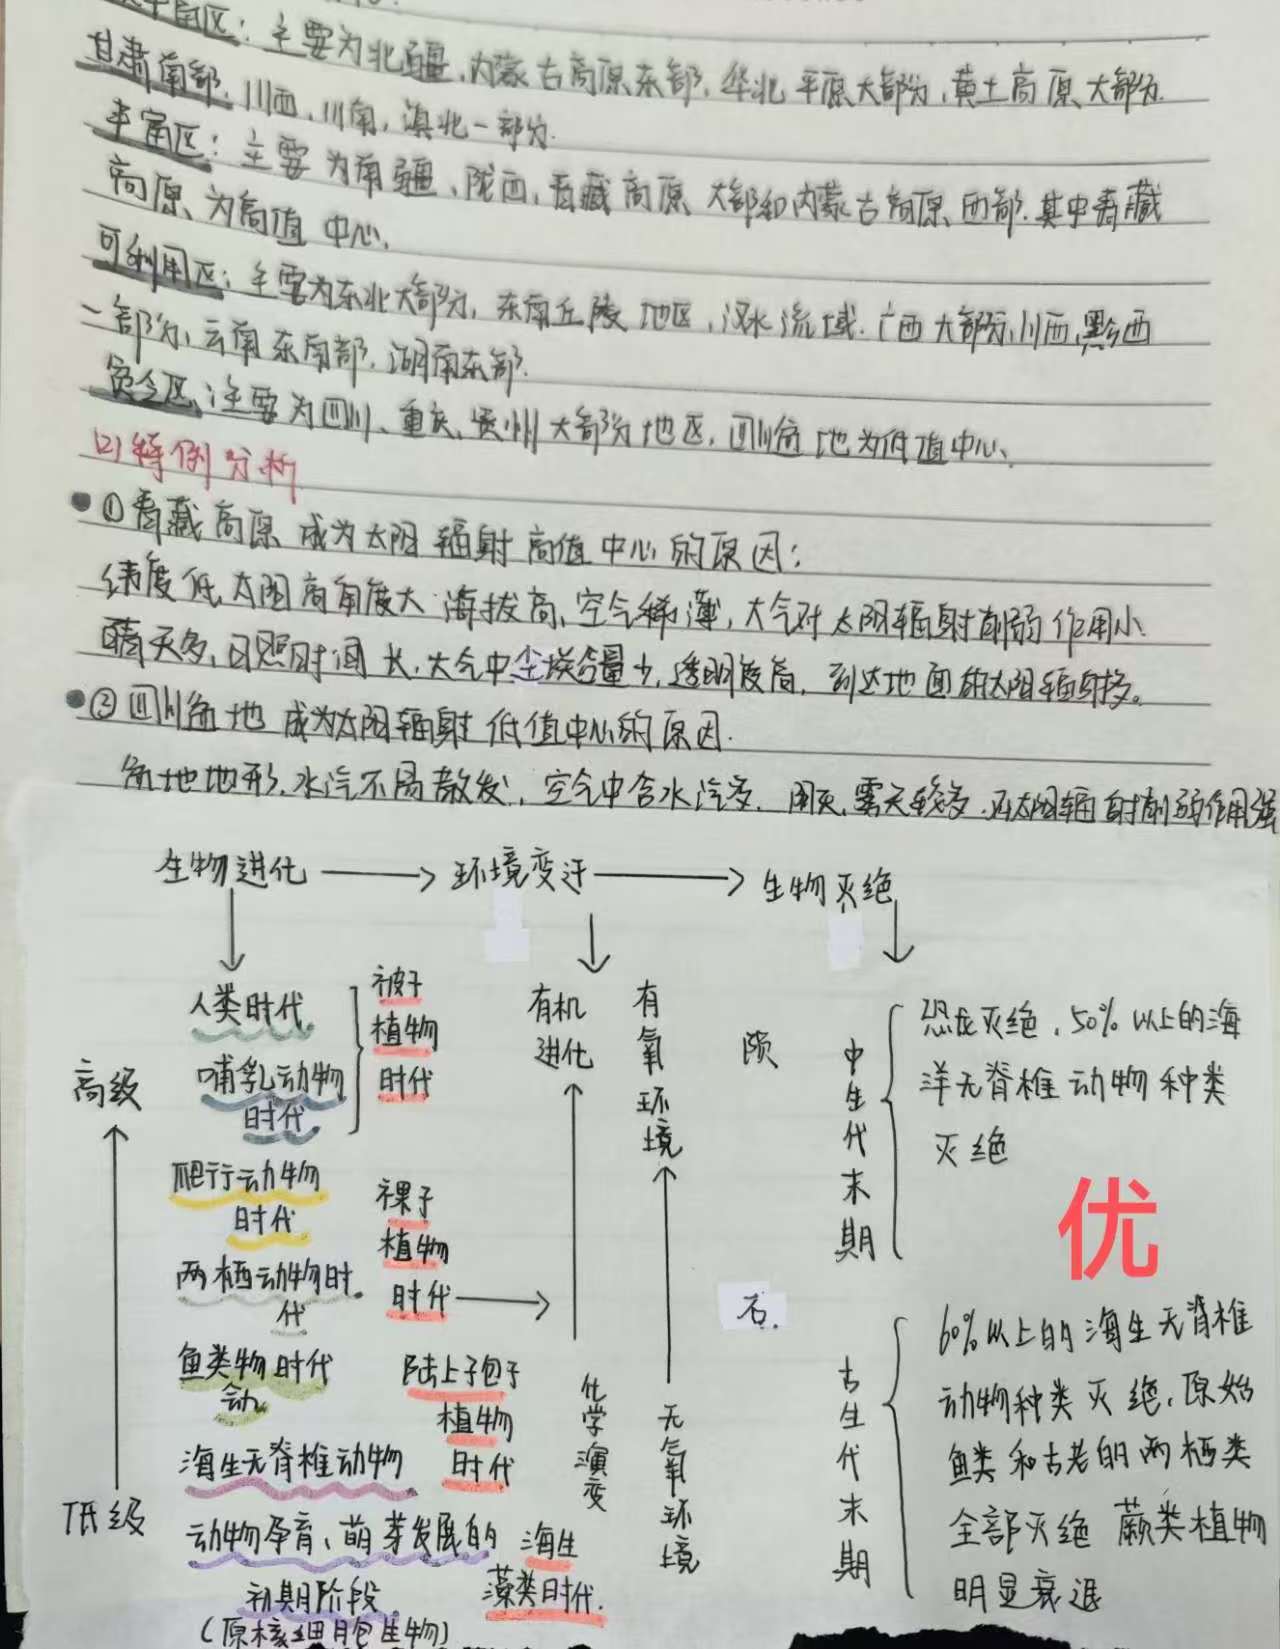 丰富区：主要为北疆、内蒙古高原东部、华北平原大部分、黄土高原大部分、
甘肃南部、川西、川南、滇北一部分.
丰富区：主要为南疆、陇西、青藏高原大部和内蒙古高原西部.其中青藏
高原为高值中心.
可利用区：主要为东北大部分，东南丘陵地区，汉水流域.广西大部分、川西、黔西
一部分、云南东南部.湖南东部.
贫乏区：主要为四川、重庆、贵州大部分地区，四川盆地为低值中心、
(2)特例分析
①青藏高原成为太阳辐射高值中心的原因：
纬度低太阳高角度大 海拔高、空气稀薄，大气对太阳辐射削弱作用小.
晴天多，日照时间长.大气中尘埃含量少，透明度高，到达地面的太阳辐射多。
②四川盆地成为太阳辐射低值中心的原因.
盆地地形.水汽不易散发，空气中含水汽多.阴天、雾天较多.对太阳辐射削弱作用强
生物进化→环境变迁→生物灭绝
人类时代
哺乳动物
时代
被子
植物
时代
有机
进化
有氧环境
显
中生代末期
恐龙灭绝、50%以上的海
洋无脊椎动物种类
灭绝
高级
爬行动物
时代
裸子
植物
时代→
两栖动物时.
代
优
石.
鱼类物时代
动
陆上孢子
植物
时代
化学演变
无氧环境
古生代末期
60%以上的海生无脊椎
动物种类灭绝，原始
鱼类和古老的两栖类
全部灭绝 蕨类植物
明显衰退
海生无脊椎动物
低级
动物孕育、萌芽发展的
初期阶段
(原核细胞生物)
海生
藻类时代.